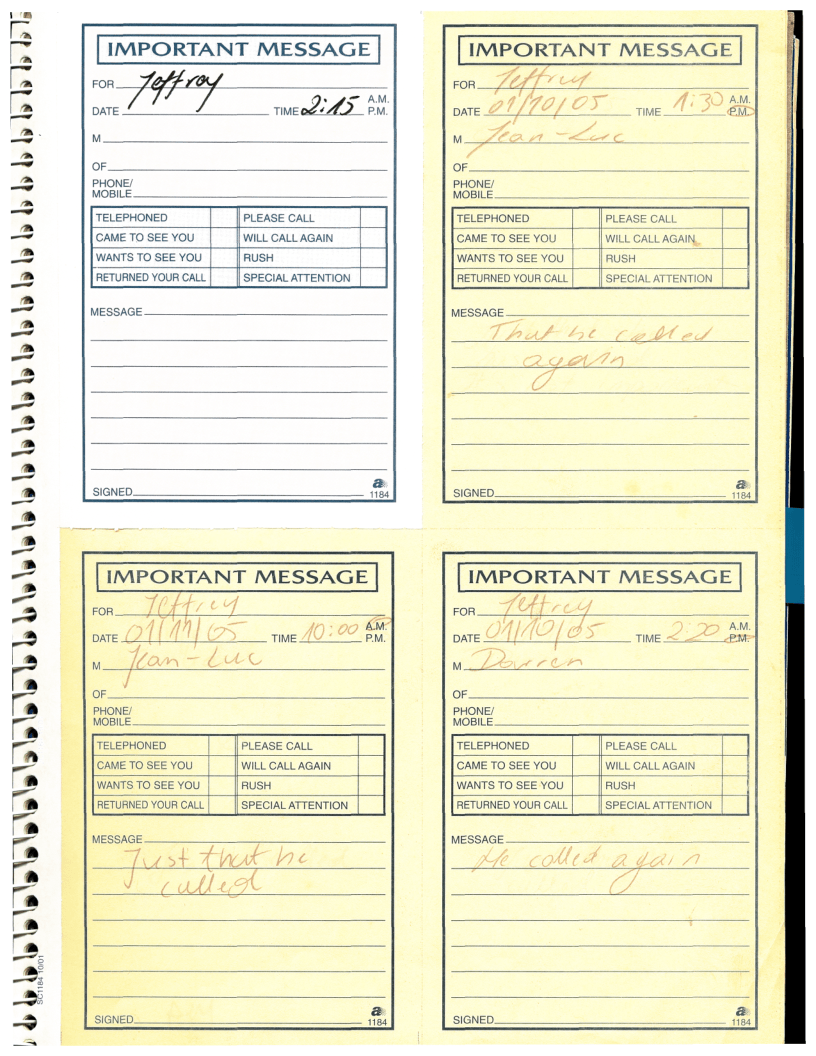 IMPORTANT MESSAGE
FOR Jeffrey
DATE TIME 2:15 A.M.
P.M.
M
OF
PHONE/
MOBILE
TELEPHONED PLEASE CALL
CAME TO SEE YOU WILL CALL AGAIN
WANTS TO SEE YOU RUSH
RETURNED YOUR CALL SPECIAL ATTENTION
MESSAGE
SIGNED
a
1184
IMPORTANT MESSAGE
FOR Jeffrey
DATE 01/10/05 TIME 1:30 A.M.
P.M.
M Jean-Luc
OF
PHONE/
MOBILE
TELEPHONED PLEASE CALL
CAME TO SEE YOU WILL CALL AGAIN
WANTS TO SEE YOU RUSH
RETURNED YOUR CALL SPECIAL ATTENTION
MESSAGE
That he called
again
SIGNED
a
1184
IMPORTANT MESSAGE
FOR Jeffrey
DATE 01/11/05 TIME 10:00 A.M.
P.M.
M Jean-Luc
OF
PHONE/
MOBILE
TELEPHONED PLEASE CALL
CAME TO SEE YOU WILL CALL AGAIN
WANTS TO SEE YOU RUSH
RETURNED YOUR CALL SPECIAL ATTENTION
MESSAGE
Just that he
called
SIGNED
a
1184
IMPORTANT MESSAGE
FOR Jeffrey
DATE 01/10/05 TIME 2:20 A.M.
P.M.
M Darren
OF
PHONE/
MOBILE
TELEPHONED PLEASE CALL
CAME TO SEE YOU WILL CALL AGAIN
WANTS TO SEE YOU RUSH
RETURNED YOUR CALL SPECIAL ATTENTION
MESSAGE
He called again
SIGNED
a
1184
SC1184 10/01